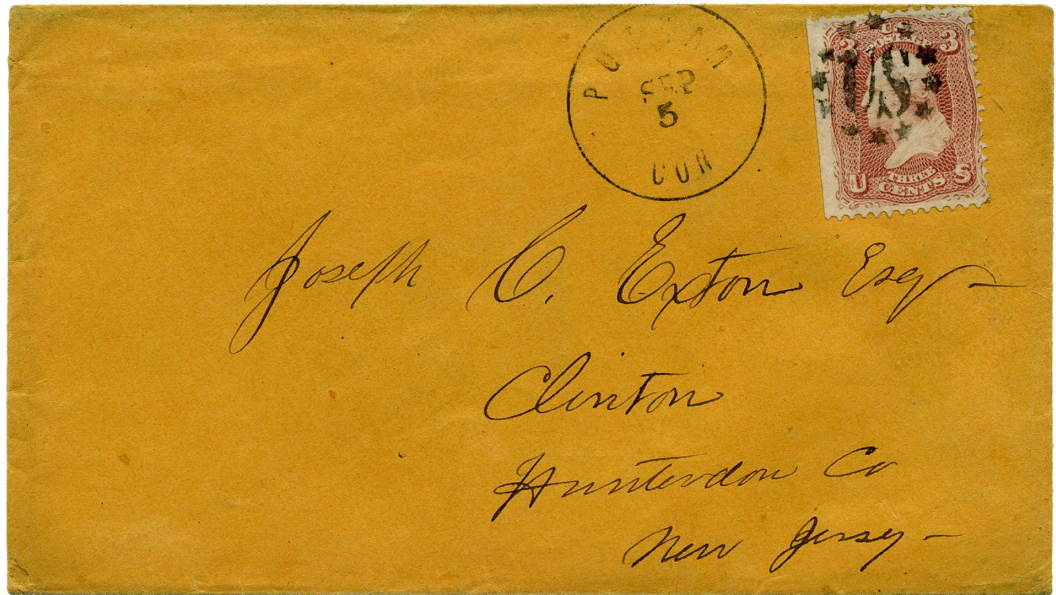 PUTNAM
SEP
5
CON
3 U S 3
POSTAGE
US
THREE
U CENTS S
Joseph C. Exton Esq
Clinton
Hunterdon Co
New Jersey